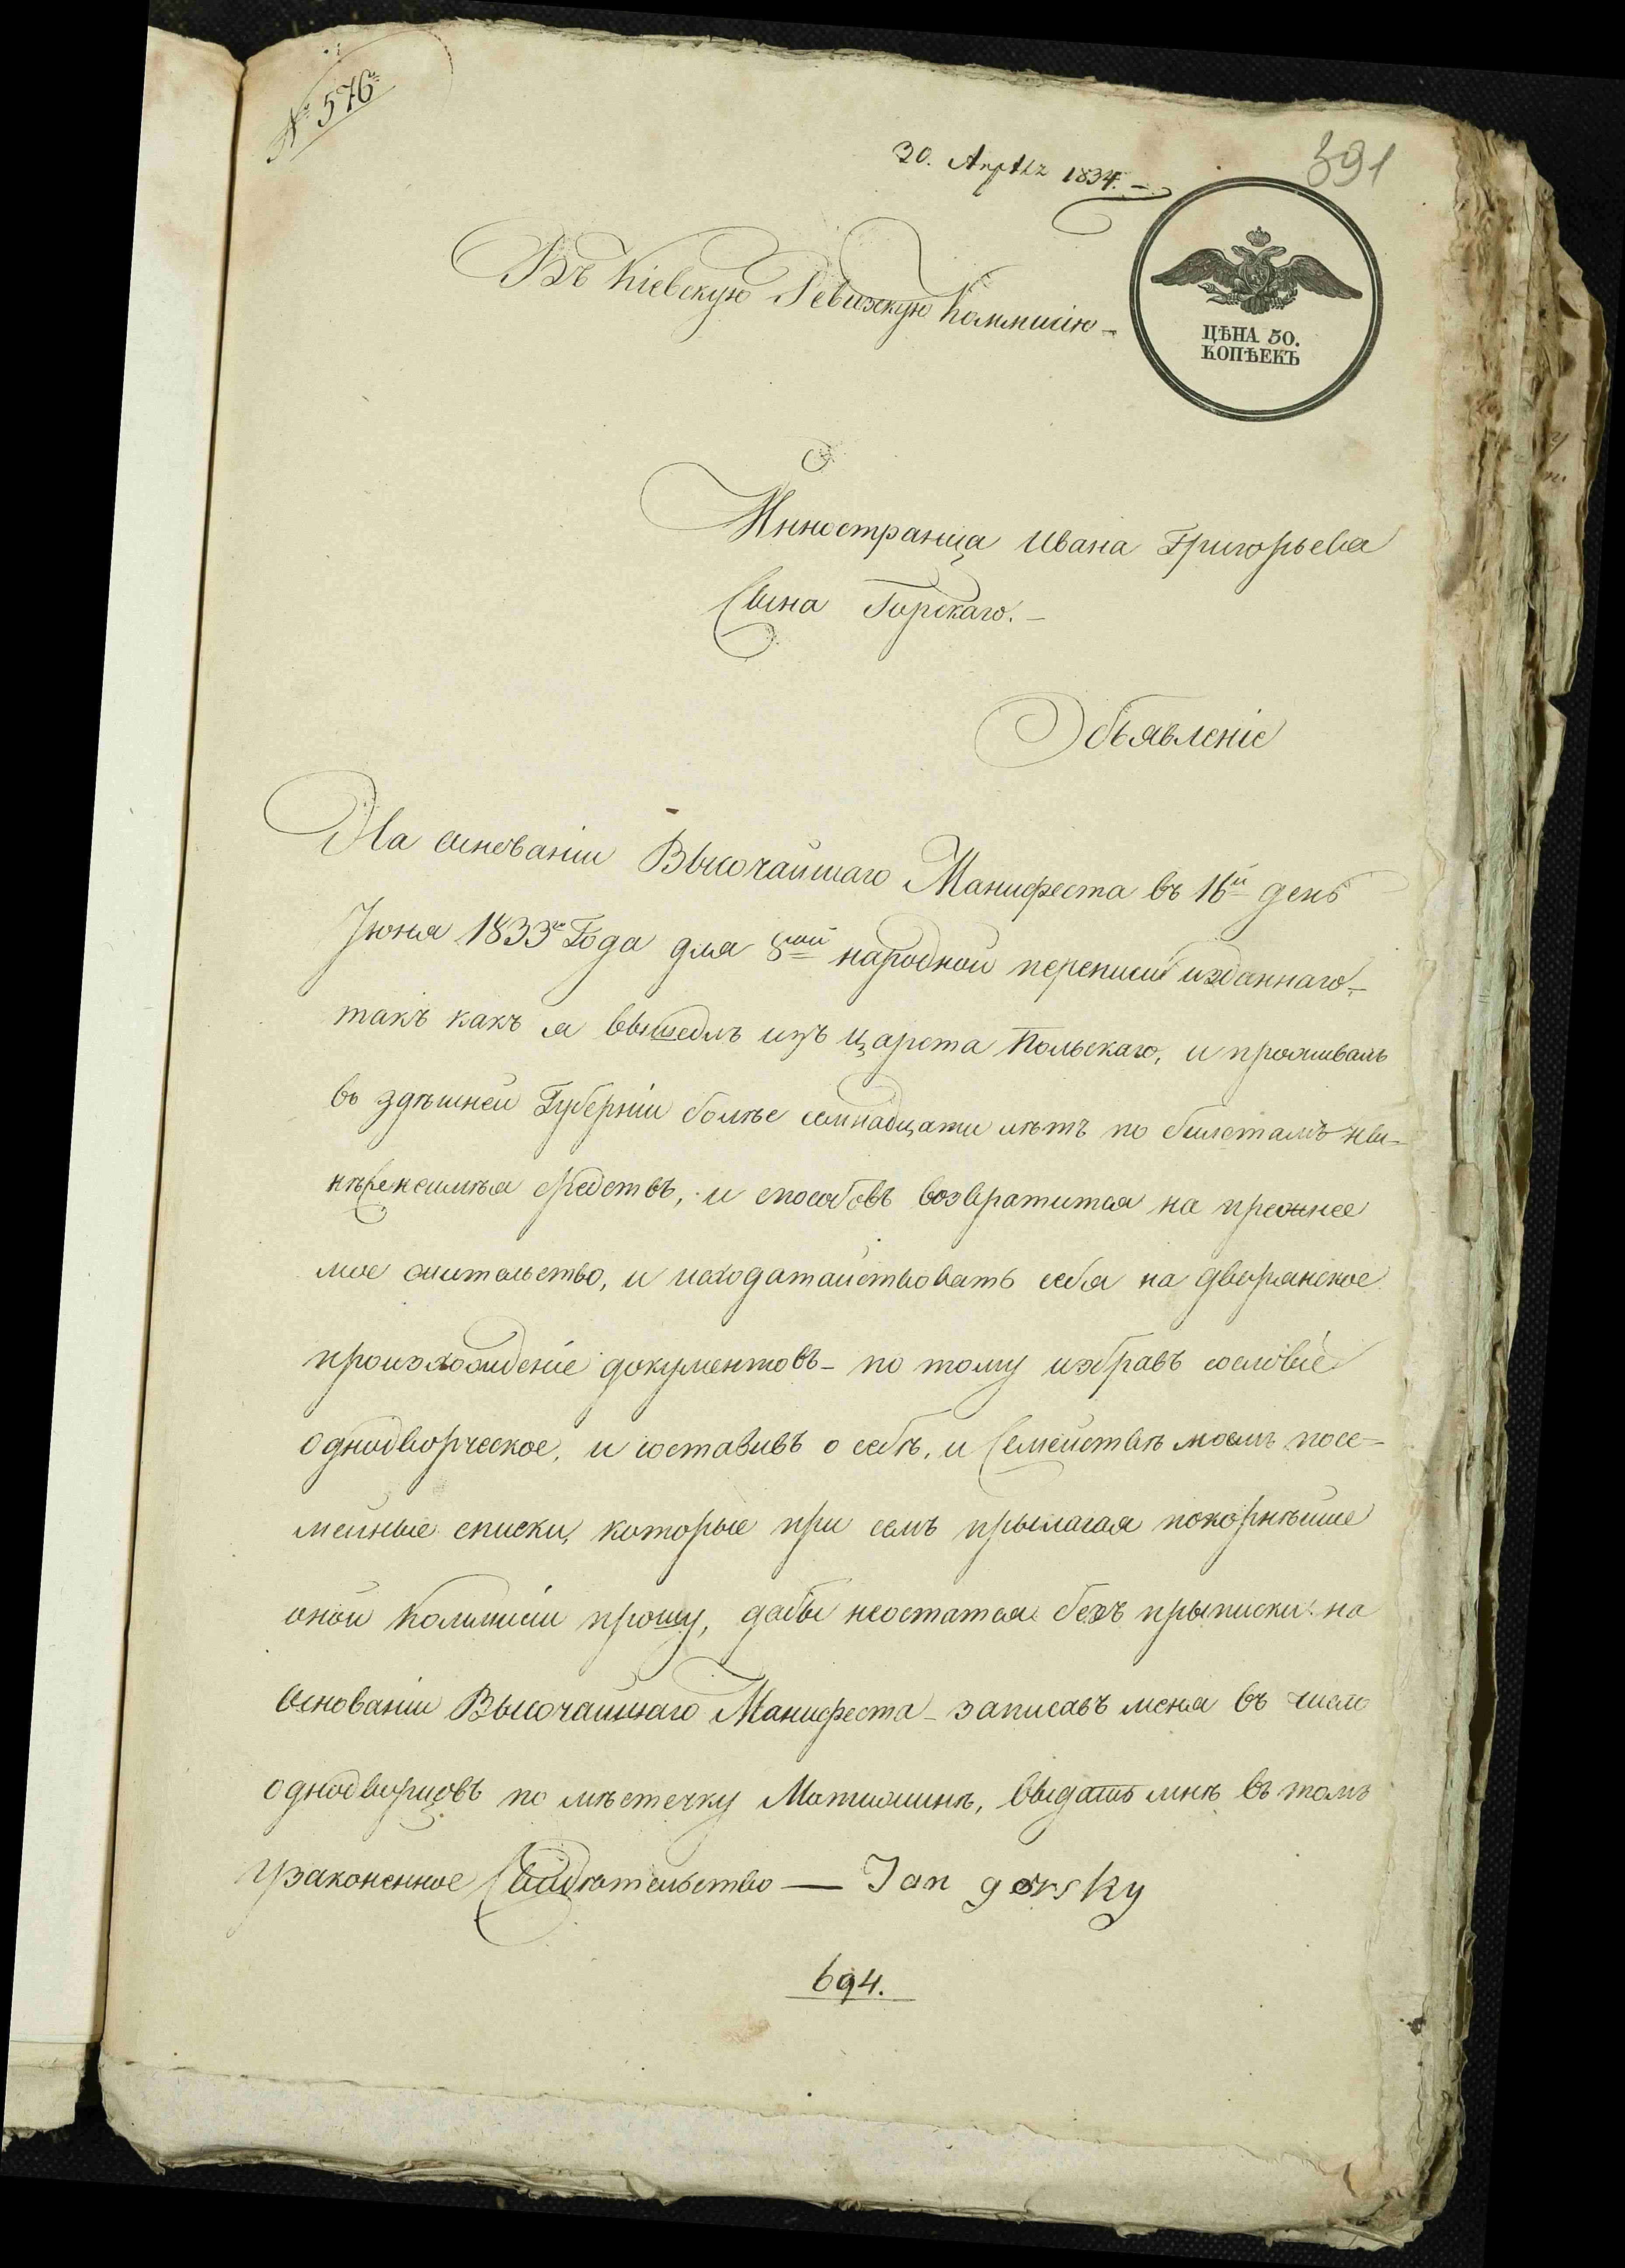 № 576
30. Апрѣля 1834. –
391
Въ Кіевскую Ревижскую Коммисію –
ЦѢНА 50.
КОПѢЕКЪ
Инностранца Ивана Григорьева
Сына Горскаго. –
Объявленіе
На основаніи Высочайшаго Манифеста въ 16й день
Іюня 1833го Года для 8мой народной переписи изданнаго, –
такъ какъ я вышедлъ изъ Царства Польскаго, и проживалъ
въ здѣшней Губерніи болѣе семнадцати лѣтъ по билетамъ
средствъ, и способовъ возвратится на прежнее
мое жительство, и исходатайствовать себя на дворянское
произхожденіе документовъ – по тому избравъ сословіе
однодворческое, и составивъ о себѣ, и Семействѣ моемъ посе=
мейные списки, которые при семъ прылагая покорнѣише
оной Коммисіи прошу, дабы неостатся безъ прыписки на
Основаніи Высочайшаго Манифеста – записавъ меня въ число
однодворцовъ по мѣстечку Матюшинѣ, выдать мнѣ въ томъ
узаконенное Свидѣтельство — Jan gorsky
694.